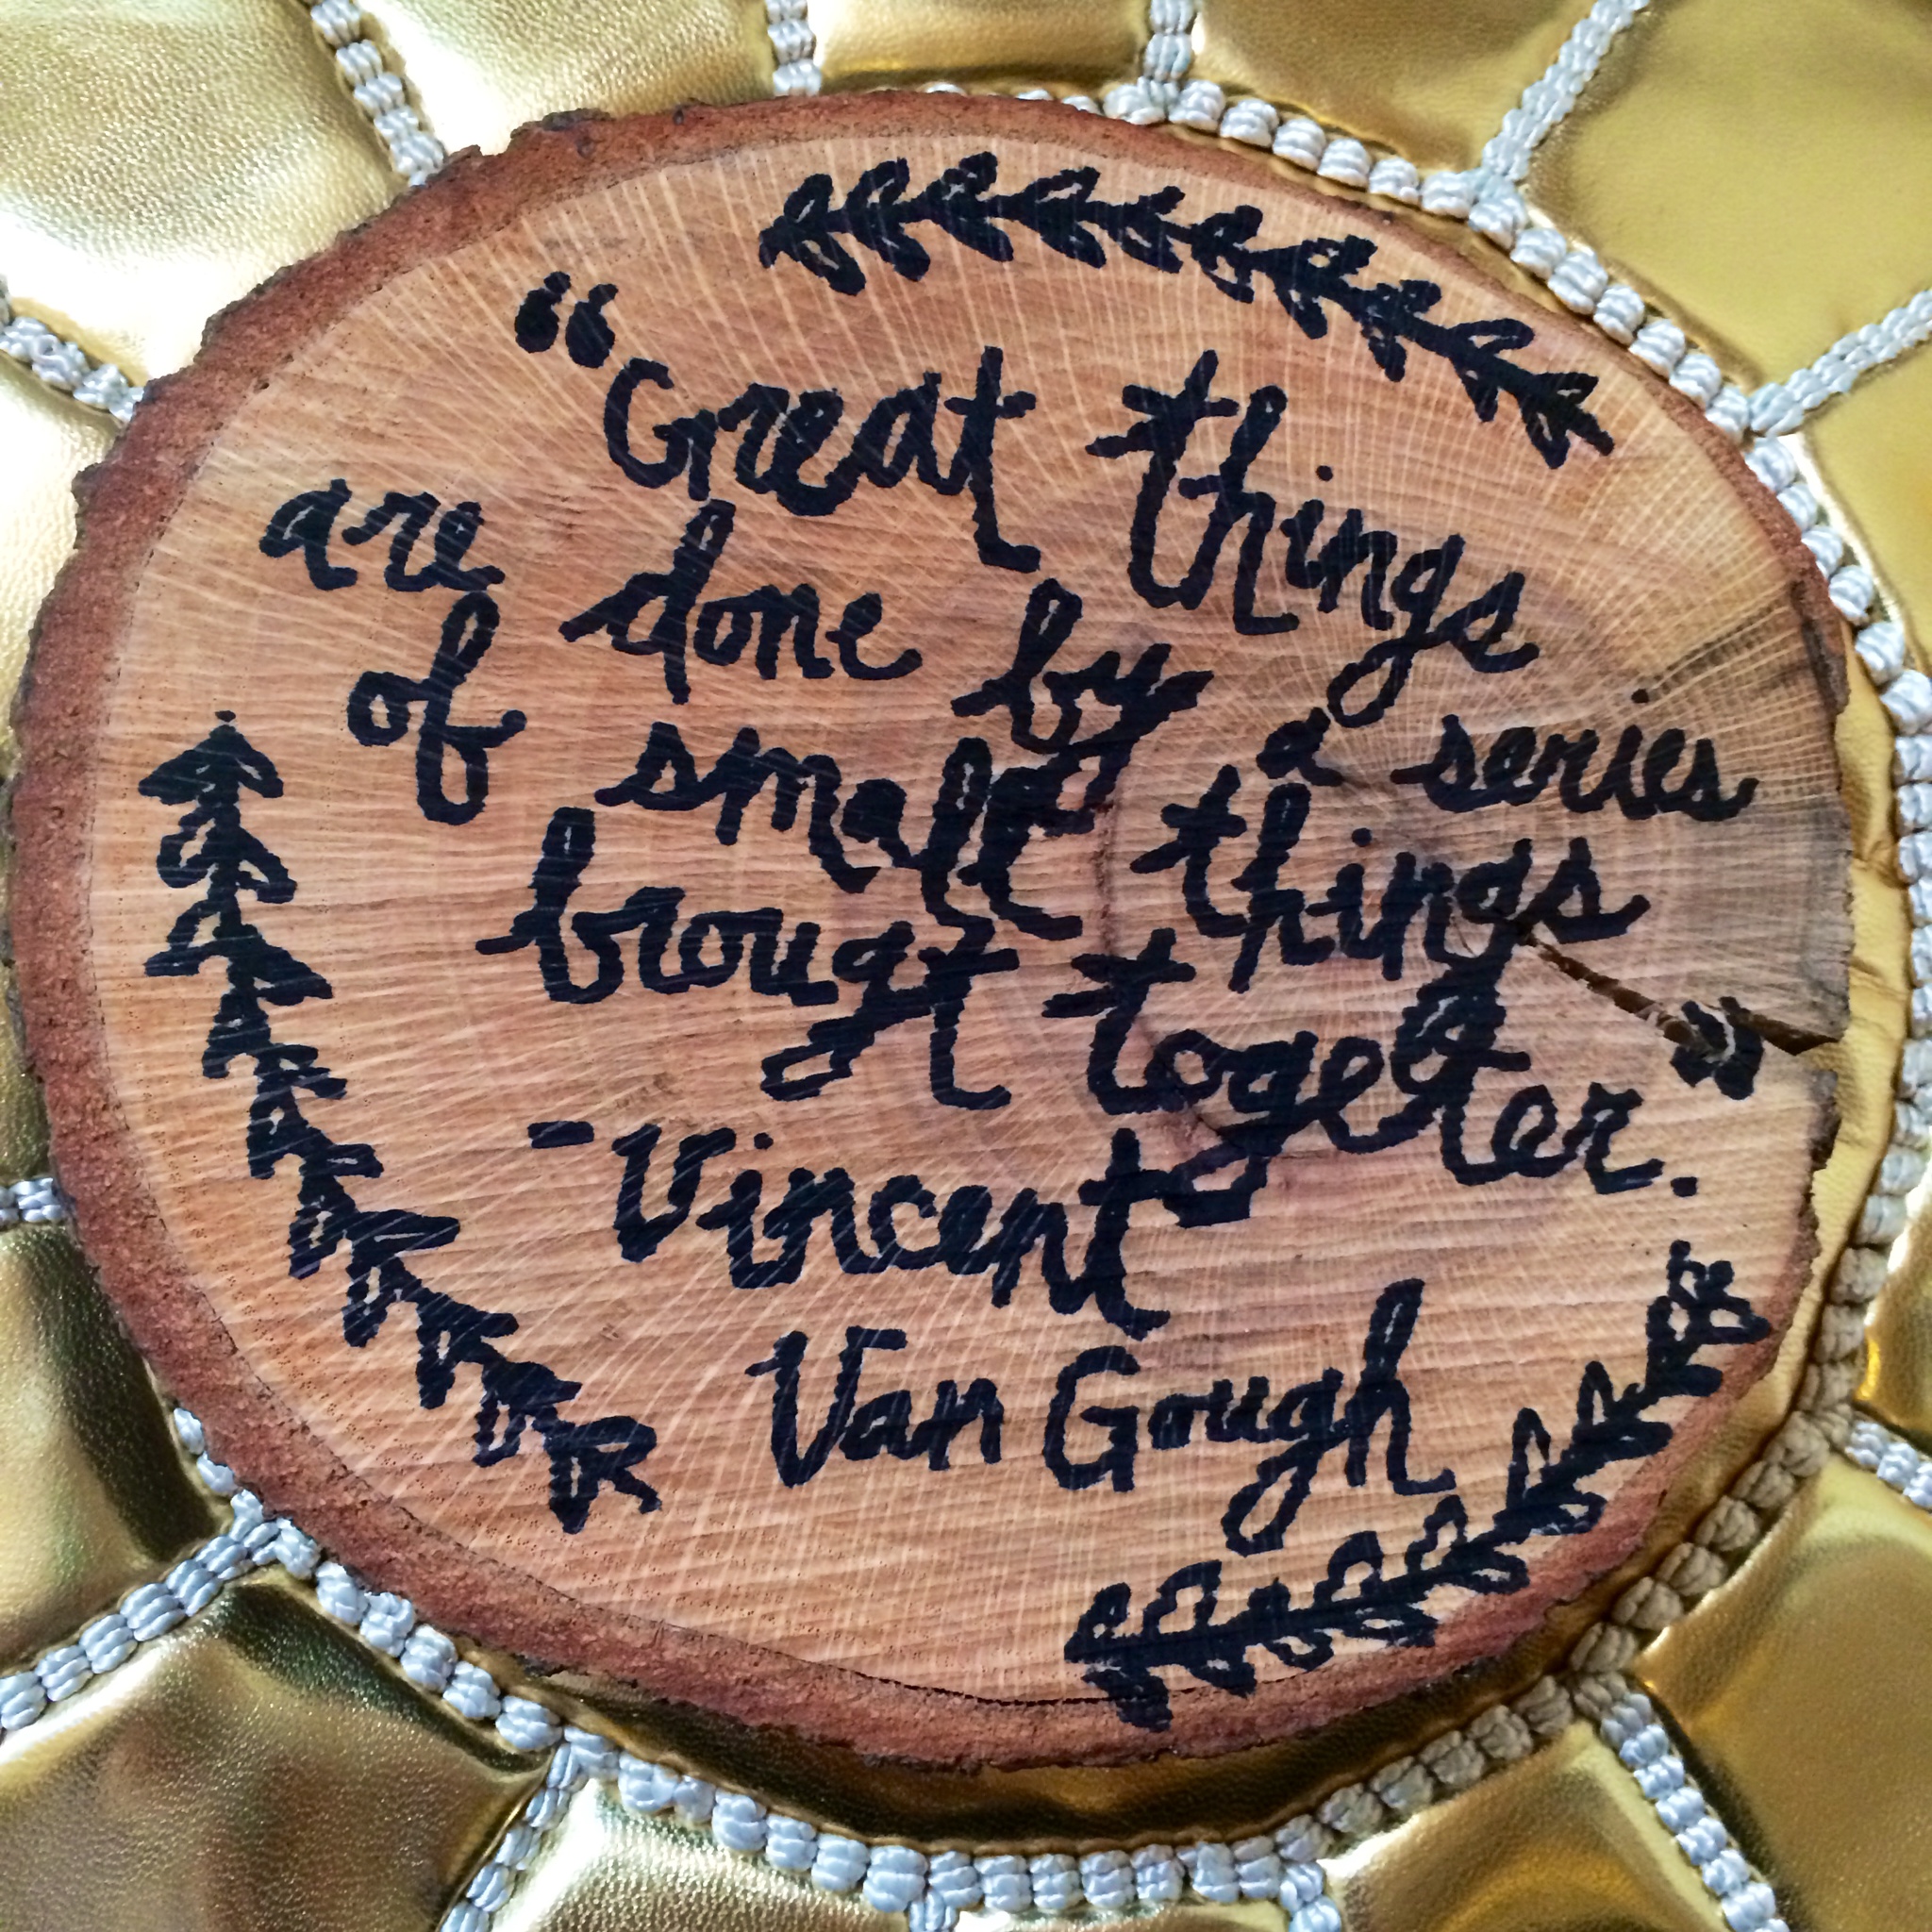 “Great things
are done by a series
of small things
brougt together.”
-Vincent
Van Gough